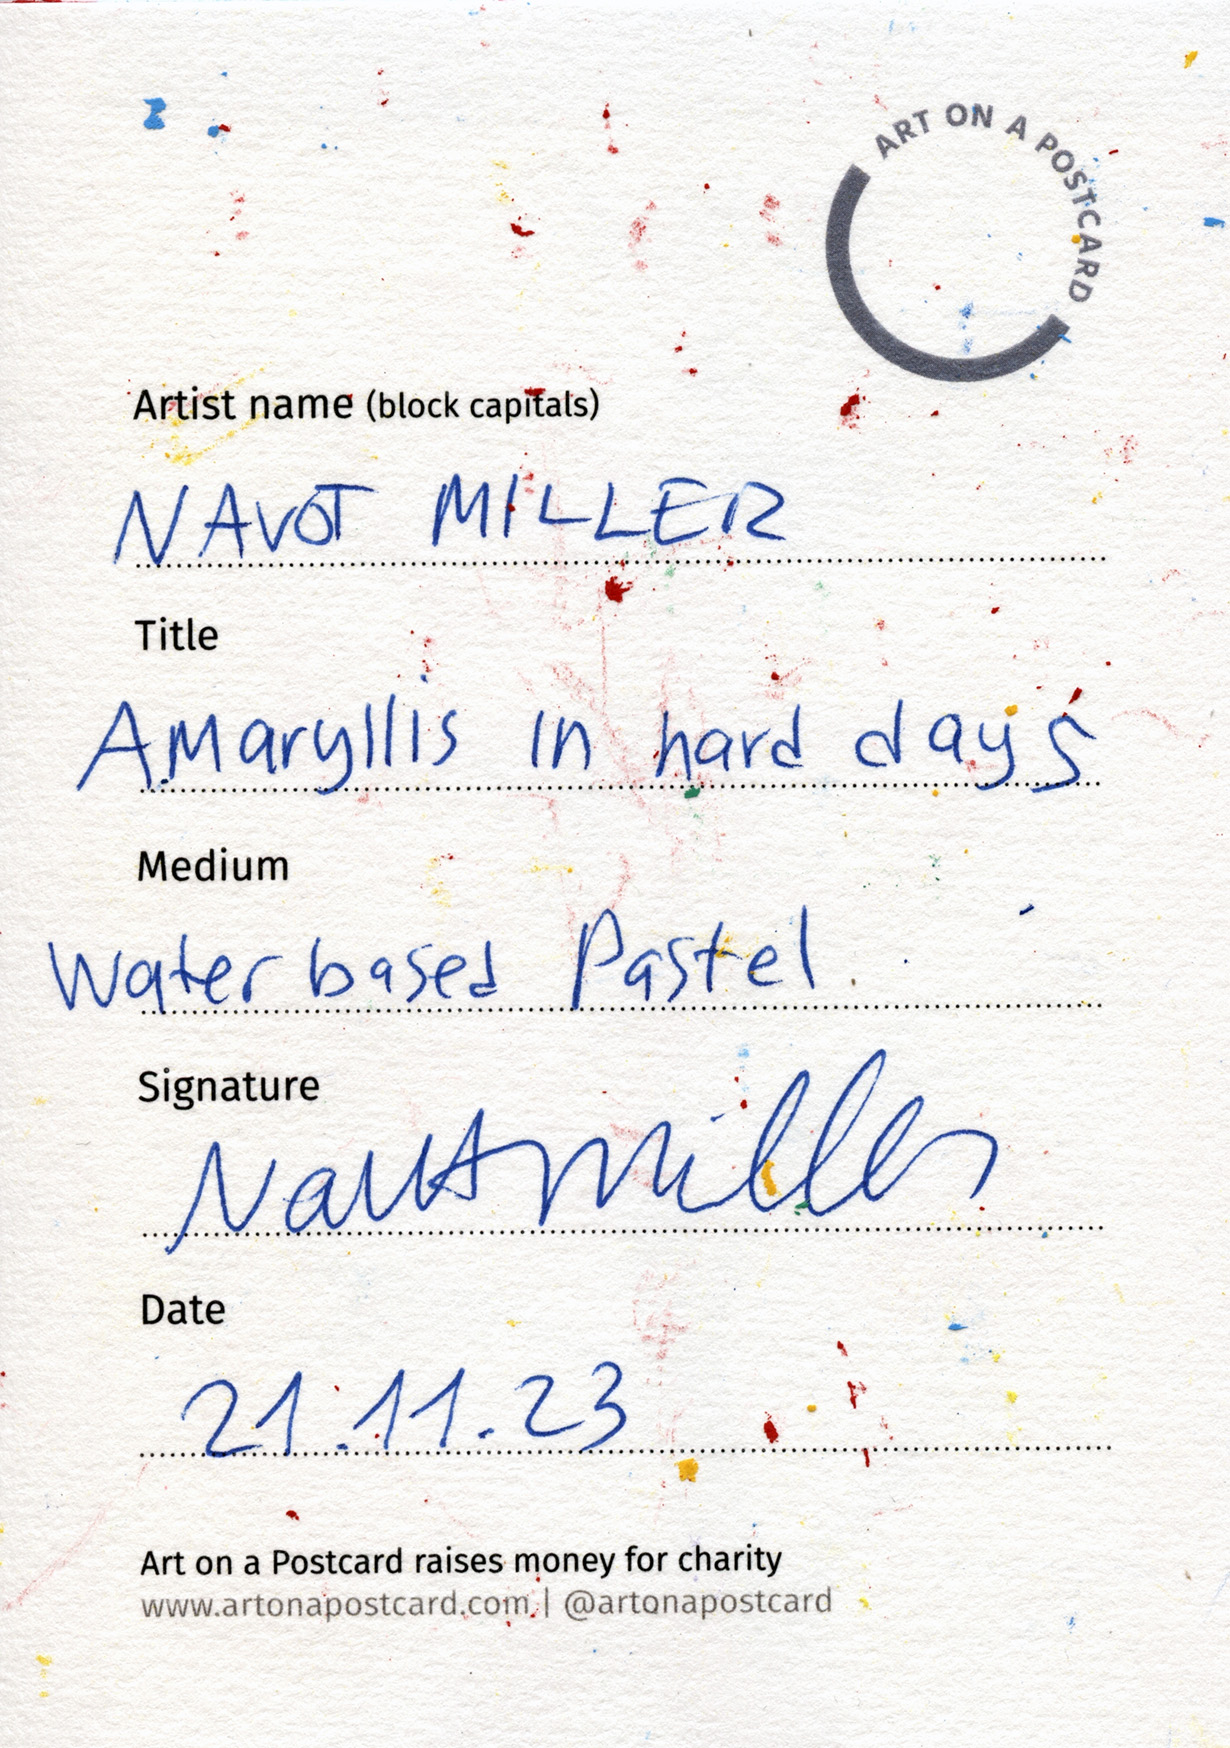 ART ON A POSTCARD
Artist name (block capitals)
NAVOT MILLER
Title
Amaryllis in hard days
Medium
Water based Pastel.
Signature
Navot Miller
Date
21.11.23
Art on a Postcard raises money for charity
www.artonapostcard.com | @artonapostcard